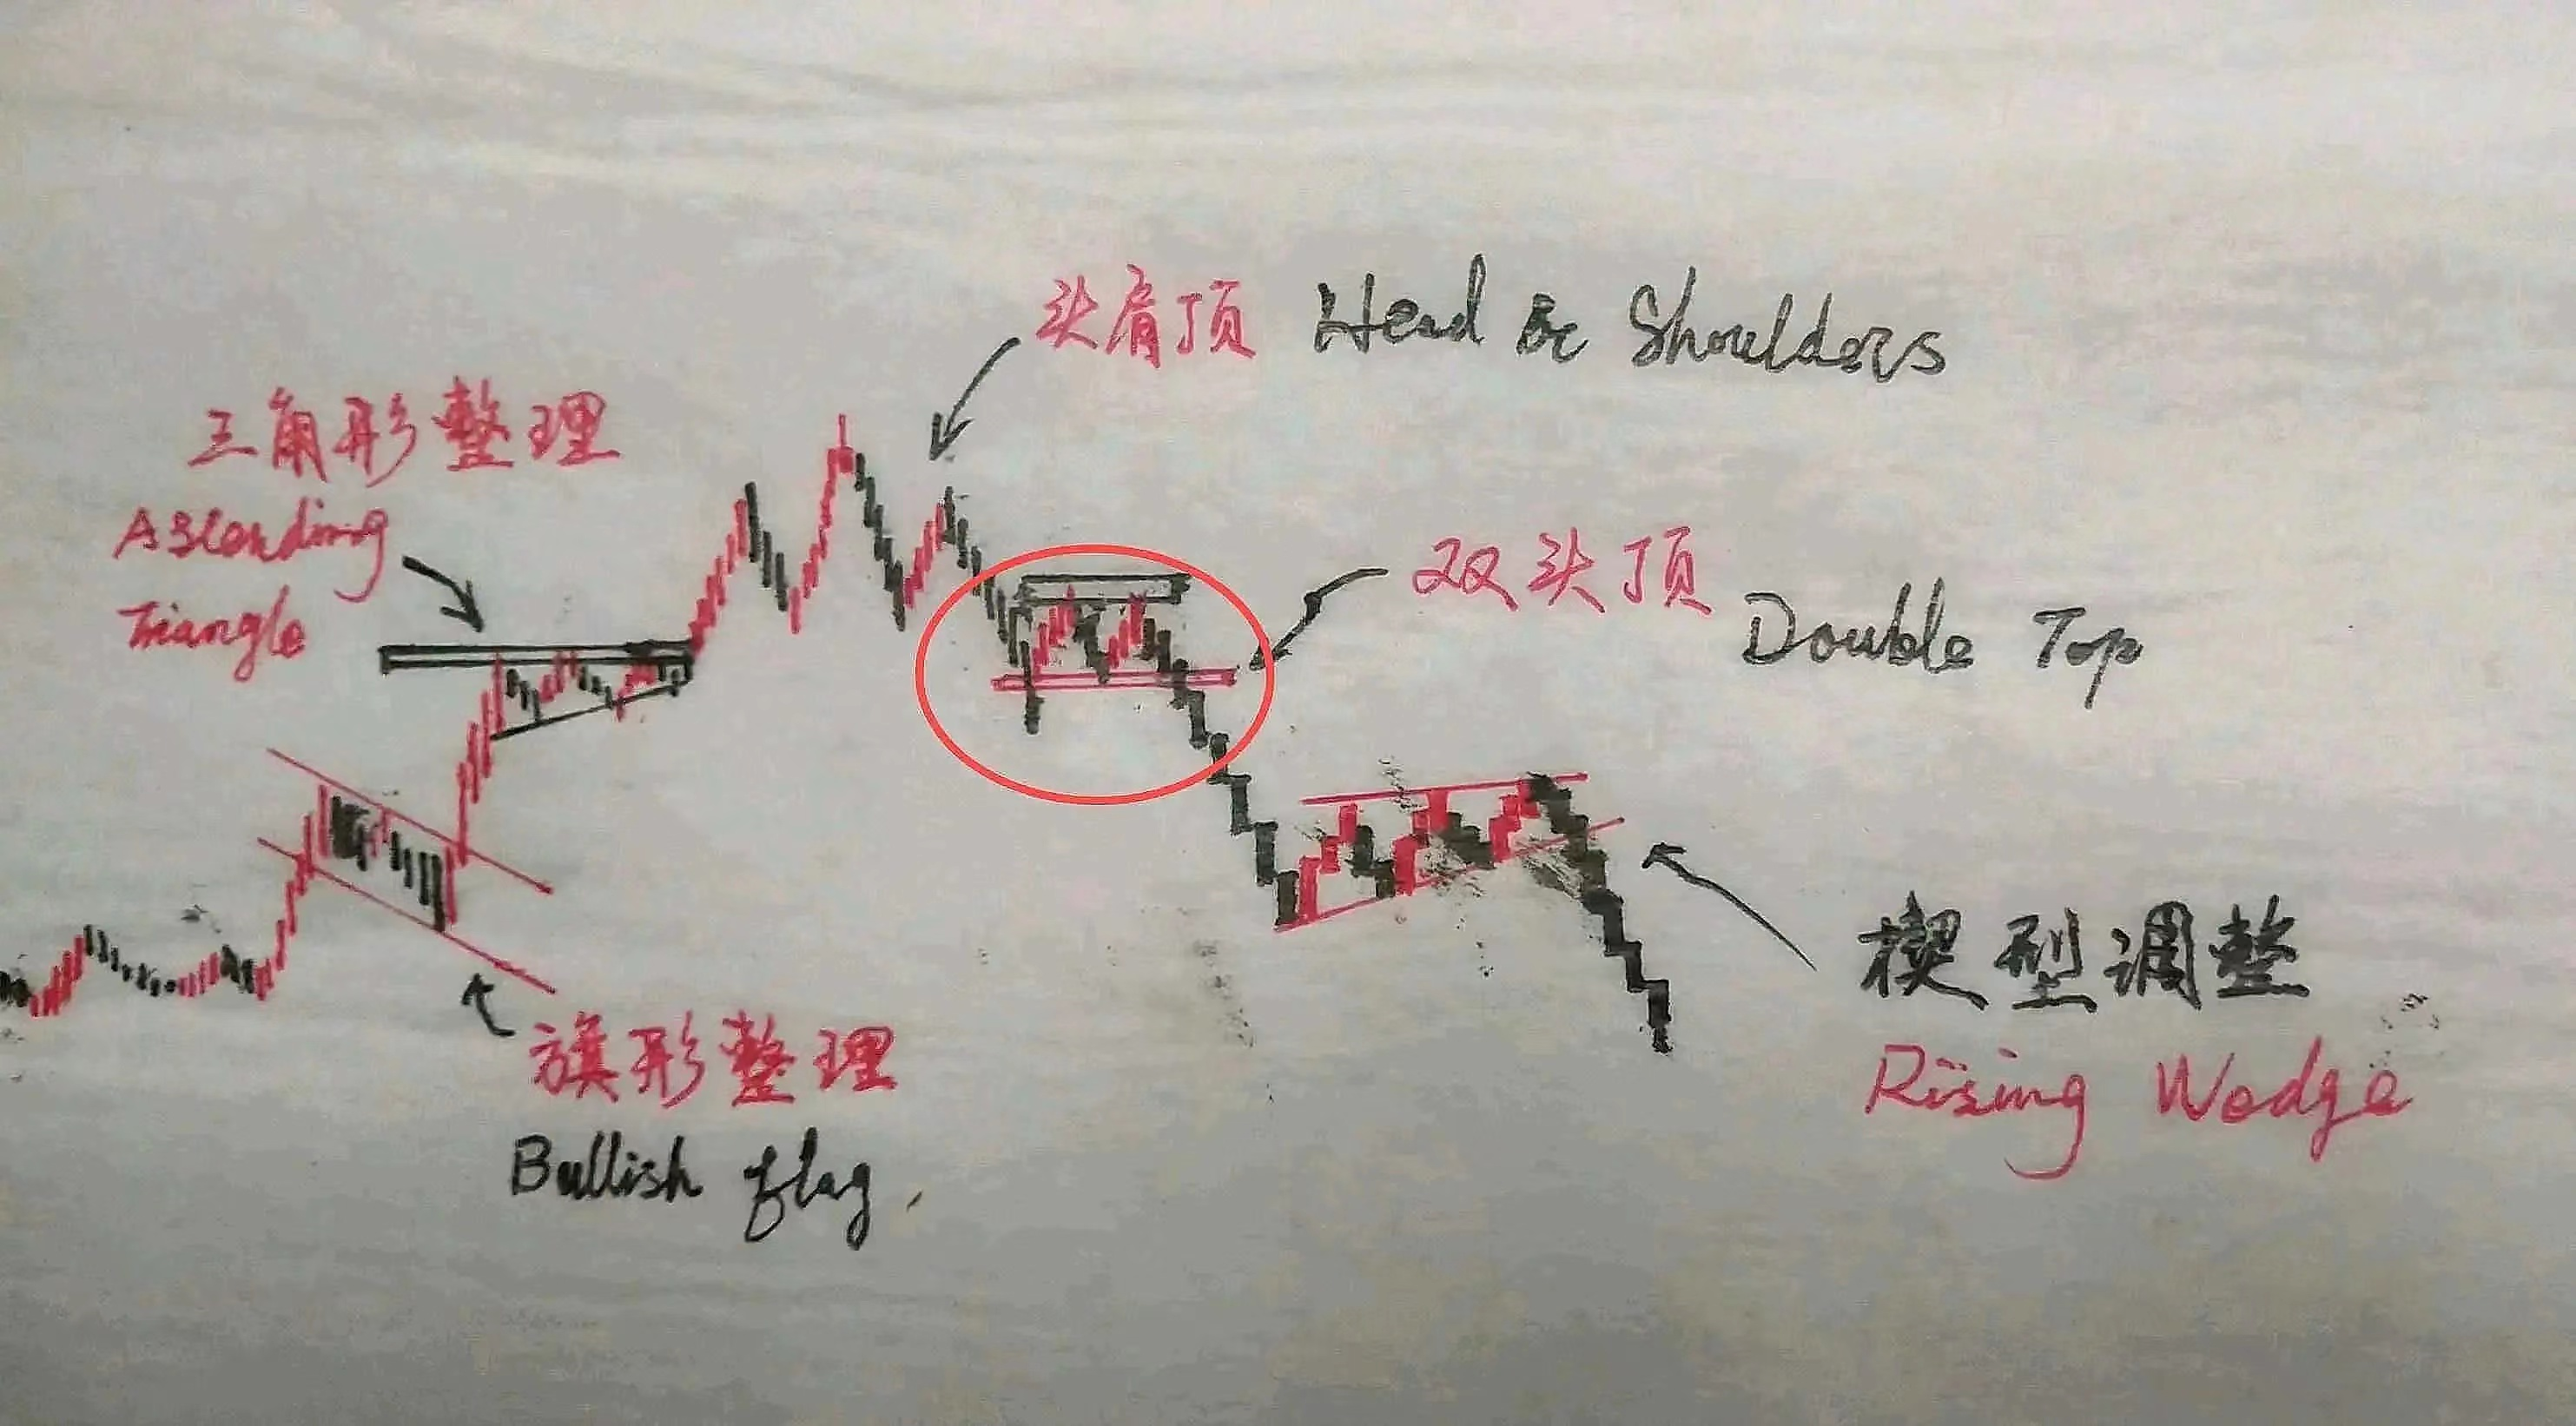 头肩顶 Head & Shoulders
三角形整理
Ascending
Triangle
双头顶
Double Top
楔型调整
Rising Wedge
旗形整理
Bullish flag